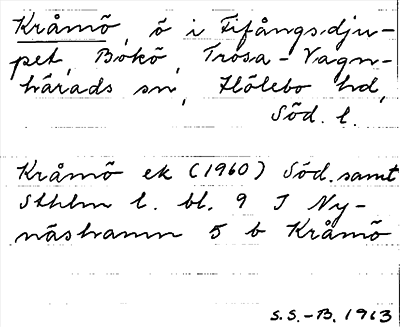 Kråmö, ö i Fifångsdju-
pet, Bokö, Trosa-Vagn-
härads sn, Hölebo hd,
Söd. l.
Kråmö ek (1960) Söd. samt
Sthlm l. bl. 9 I Ny-
näshamn 5 b Kråmö
S.S.-B. 1963